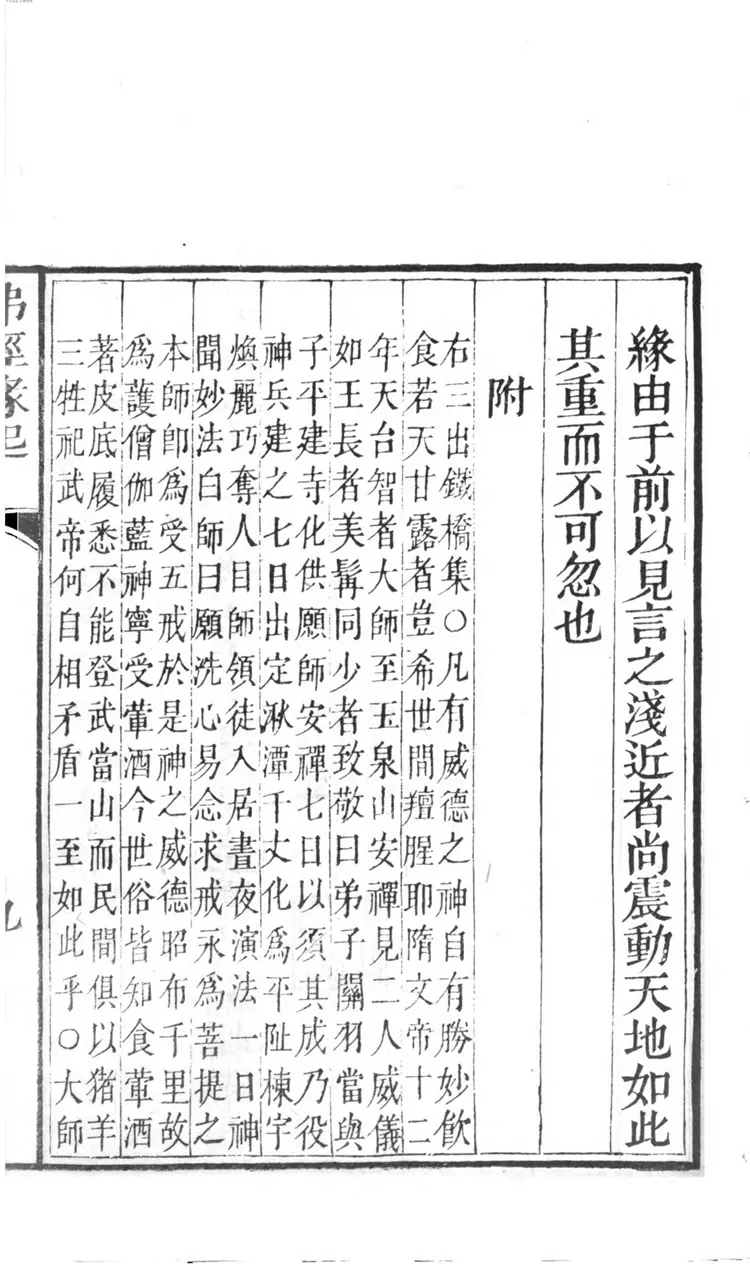 緣由于前以見言之淺近者尚震動天地如此
其重而不可忽也
附
右三出鐵橋集○凡有威德之神自有勝妙飲
食若天甘露者豈希世間羶腥耶隋文帝十二
年天台智者大師至玉泉山安禪見二人威儀
如王長者美髯同少者致敬曰弟子關羽當與
子平建寺化供願師安禪七日以須其成乃役
神兵建之七日出定湫潭千丈化為平阯棟宇
煥麗巧奪人目師領徒入居晝夜演法一日神
聞妙法白師曰願洗心易念求戒永為菩提之
本師卽為受五戒於是神之威德昭布千里故
為護僧伽藍神寧受葷酒今世俗皆知食葷酒
著皮底履悉不能登武當山而民間俱以猪羊
三牲祀武帝何自相矛盾一至如此乎○大師
經緣起
九